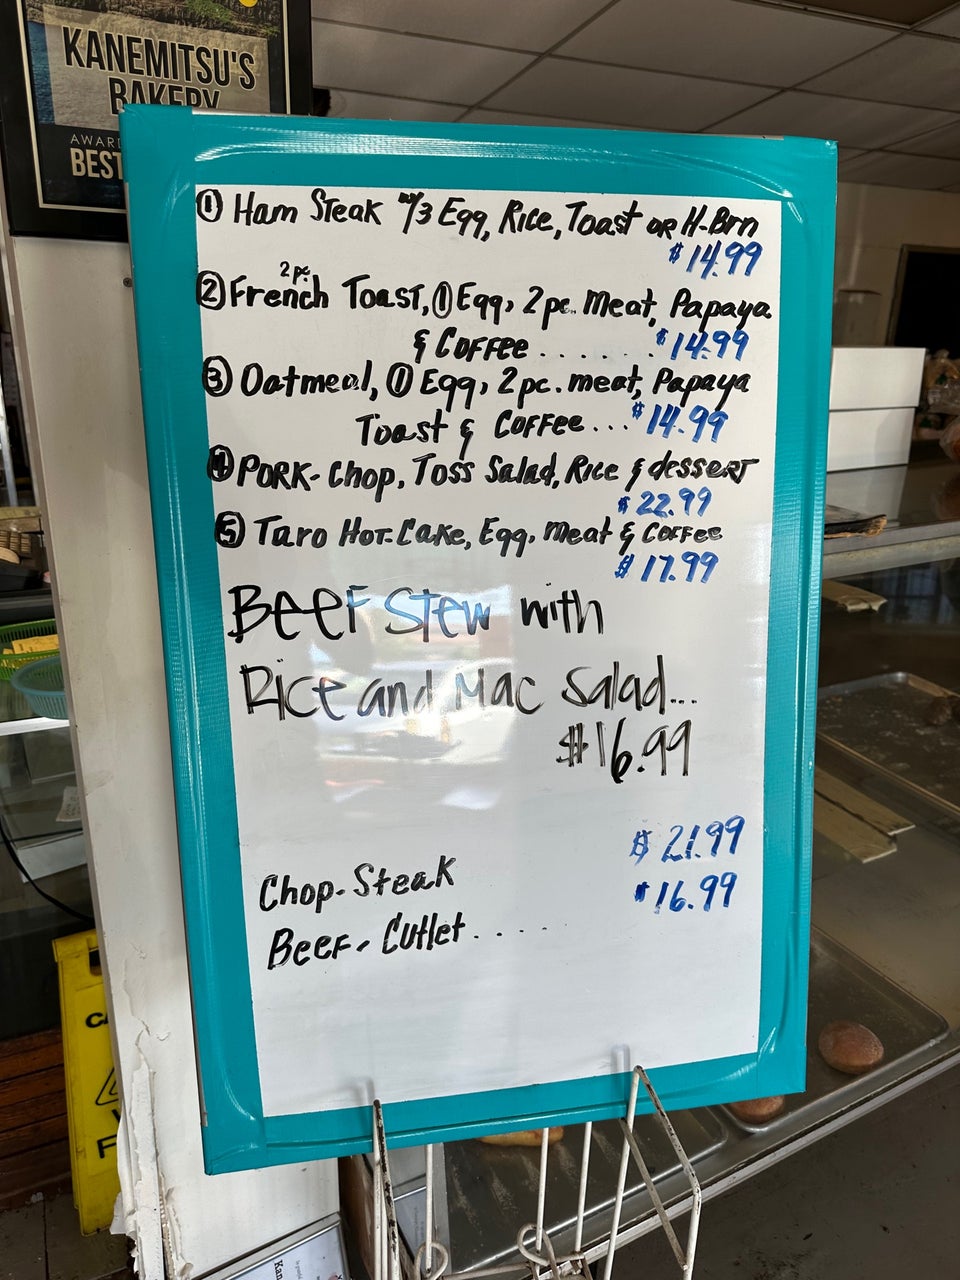 KANEMITSU'S
BAKERY
AWARD
BEST
① Ham Steak w/3 Egg, Rice, Toast or H-Brn
$14.99
2pc.
② French Toast, ① Egg, 2pc. meat, Papaya
& Coffee ...... $14.99
③ Oatmeal, ① Egg, 2pc. meat, Papaya
Toast & Coffee... $14.99
④ Pork-Chop, Toss Salad, Rice & dessert
$22.99
⑤ Taro Hot-Cake, Egg, Meat & Coffee
$17.99
Beef Stew with
Rice and Mac Salad...
$16.99
Chop-Steak $21.99
Beef-Cutlet ..... $16.99